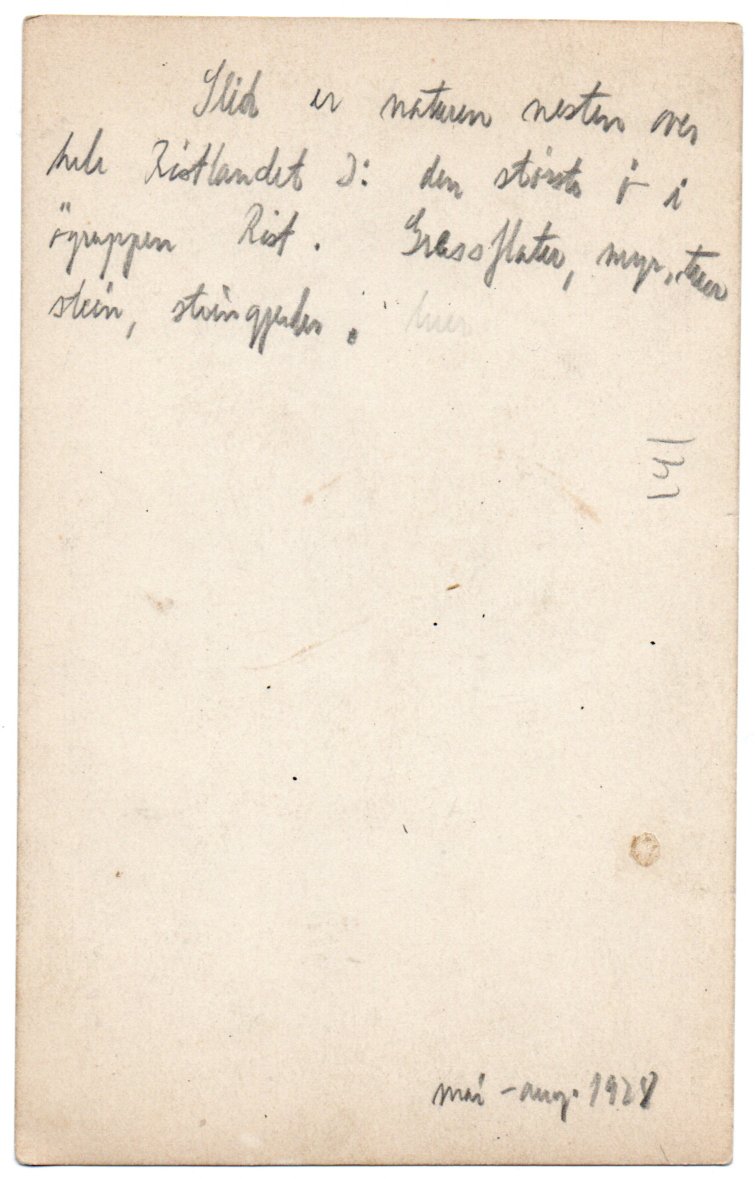 Slik er naturen nesten over
hele Röstlandet ɔ: den største ö i
ögruppen Röst. Gressflater, myr,
stein, steingjerder.
141
mai - aug. 1928